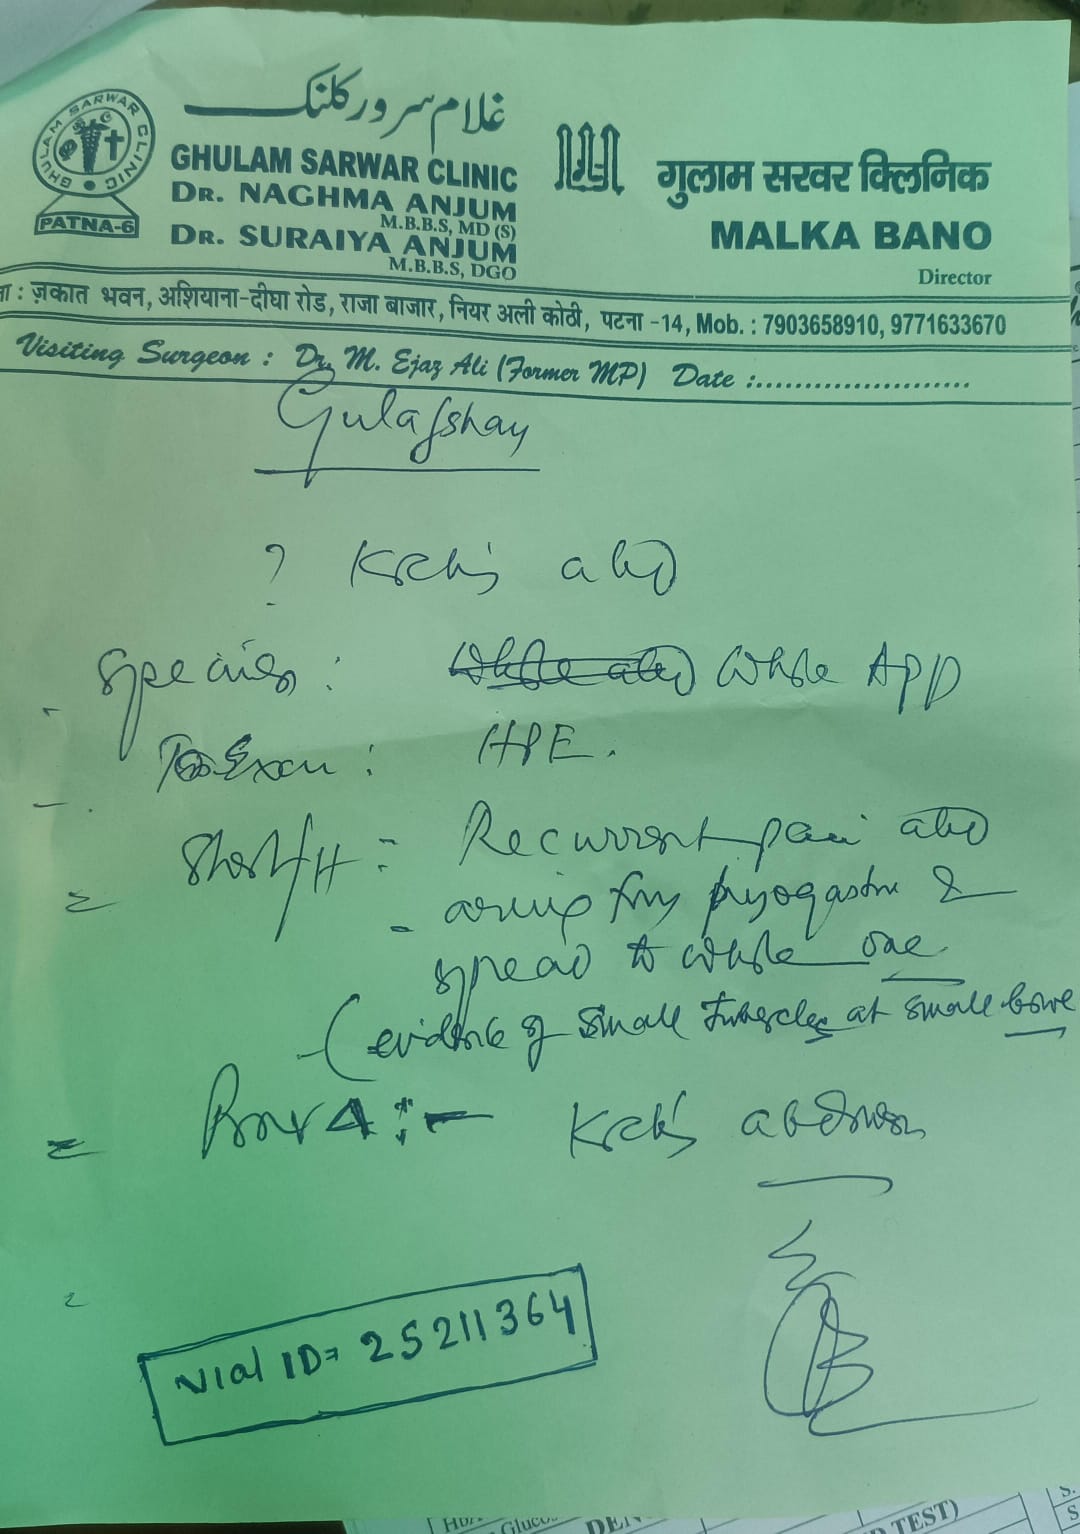 غلام سرور کلنک
GHULAM SARWAR CLINIC
PATNA-6
GHULAM SARWAR CLINIC
DR. NAGHMA ANJUM
M.B.B.S, MD (S)
DR. SURAIYA ANJUM
M.B.B.S, DGO
गुलाम सरवर क्लिनिक
MALKA BANO
Director
ता : ज़कात भवन, अशियाना-दीघा रोड, राजा बाजार, नियर अली कोठी, पटना -14, Mob. : 7903658910, 9771633670
Visiting Surgeon : Dr. M. Ejaz Ali (Former MP) Date :......................
Gulafshay
? Koch's abd
: Whole APP
: HPE.
Short/H :- Recurrent pain abd
- arising &
spread to whole one
(evidence of small tubercles at small bowe
:- Koch's abdomen
Vial ID= 25211364
TEST)